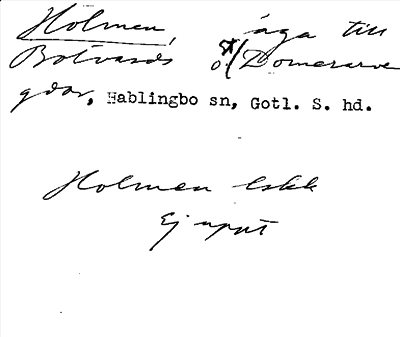 Holmen, äga till
Botvards o St Domerarve
gdar, Hablingbo sn, Gotl. S. hd.
Holmen lskk
Ej uppt